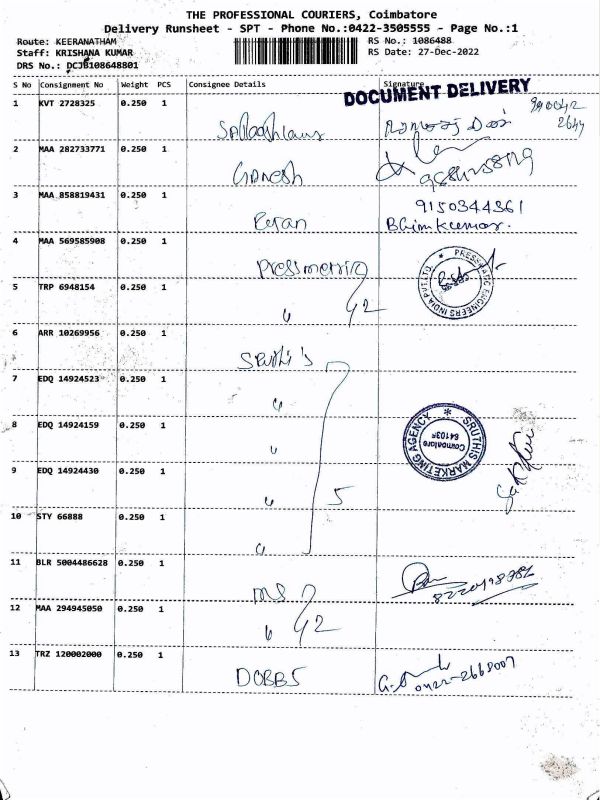 THE PROFESSIONAL COURIERS, Coimbatore
Delivery Runsheet - SPT - Phone No.:0422-3505555 - Page No.:1
Route: KEERANATHAM
RS No.: 1086488
Staff: KRISHANA KUMAR
RS Date: 27-Dec-2022
DRS No.: DCJB108648801
S No Consignment No Weight PCS Consignee Details Signature
DOCUMENT DELIVERY
1 KVT 2728325 0.250 1
2 MAA 282733771 0.250 1 Ganesh
3 MAA 858819431 0.250 1 9150344361
Bhimkumar.
4 MAA 569585908 0.250 1
PRESSMATIC ENGINEERS INDIA PVT. LTD.
5 TRP 6948154 0.250 1 " 2
6 ARR 10269956 0.250 1 Sruthi's
7 EDQ 14924523 0.250 1 "
8 EDQ 14924159 0.250 1 "
SRUTHIS MARKETING AGENCY
9 EDQ 14924430 0.250 1 " 5
10 STY 66888 0.250 1 "
11 BLR 5004486628 0.250 1
12 MAA 294945050 0.250 1 " 2
13 TRZ 120002000 0.250 1 DOBBS 0422-2668007